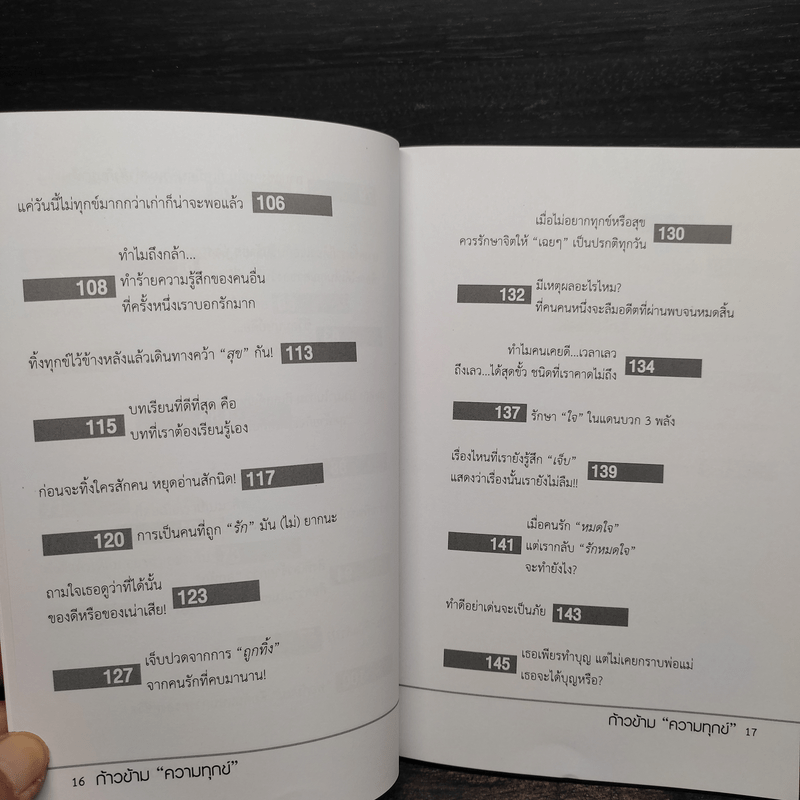 แค่วันนี้ไม่ทุกข์มากกว่าเก่าก็น่าจะพอแล้ว 106
ทำไมถึงกล้า...
108 ทำร้ายความรู้สึกของคนอื่น
ที่ครั้งหนึ่งเราบอกรักมาก
ทิ้งทุกข์ไว้ข้างหลังแล้วเดินทางคว้า “สุข” กัน! 113
บทเรียนที่ดีที่สุด คือ
115 บทที่เราต้องเรียนรู้เอง
ก่อนจะทิ้งใครสักคน หยุดอ่านสักนิด! 117
120 การเป็นคนที่ถูก “รัก” มัน (ไม่) ยากนะ
ถามใจเธอดูว่าที่ได้นั้น
ของดีหรือของเน่าเสีย! 123
เจ็บปวดจากการ “ถูกทิ้ง”
127 จากคนรักที่คบมานาน!
16 ก้าวข้าม “ความทุกข์”
เมื่อไม่อยากทุกข์หรือสุข
ควรรักษาจิตให้ “เฉยๆ” เป็นปรกติทุกวัน 130
มีเหตุผลอะไรไหม?
132 ที่คนคนหนึ่งจะลืมอดีตที่ผ่านพบจนหมดสิ้น
ทำไมคนเคยดี...เวลาเลว
ถึงเลว...ได้สุดขั้ว ชนิดที่เราคาดไม่ถึง 134
137 รักษา “ใจ” ในแดนบวก 3 พลัง
เรื่องไหนที่เรายังรู้สึก “เจ็บ”
แสดงว่าเรื่องนั้นเรายังไม่ลืม!! 139
เมื่อคนรัก “หมดใจ”
141 แต่เรากลับ “รักหมดใจ”
จะทำยังไง?
ทำดีอย่าเด่นจะเป็นภัย 143
145 เธอเพียรทำบุญ แต่ไม่เคยกราบพ่อแม่
เธอจะได้บุญหรือ?
ก้าวข้าม “ความทุกข์” 17